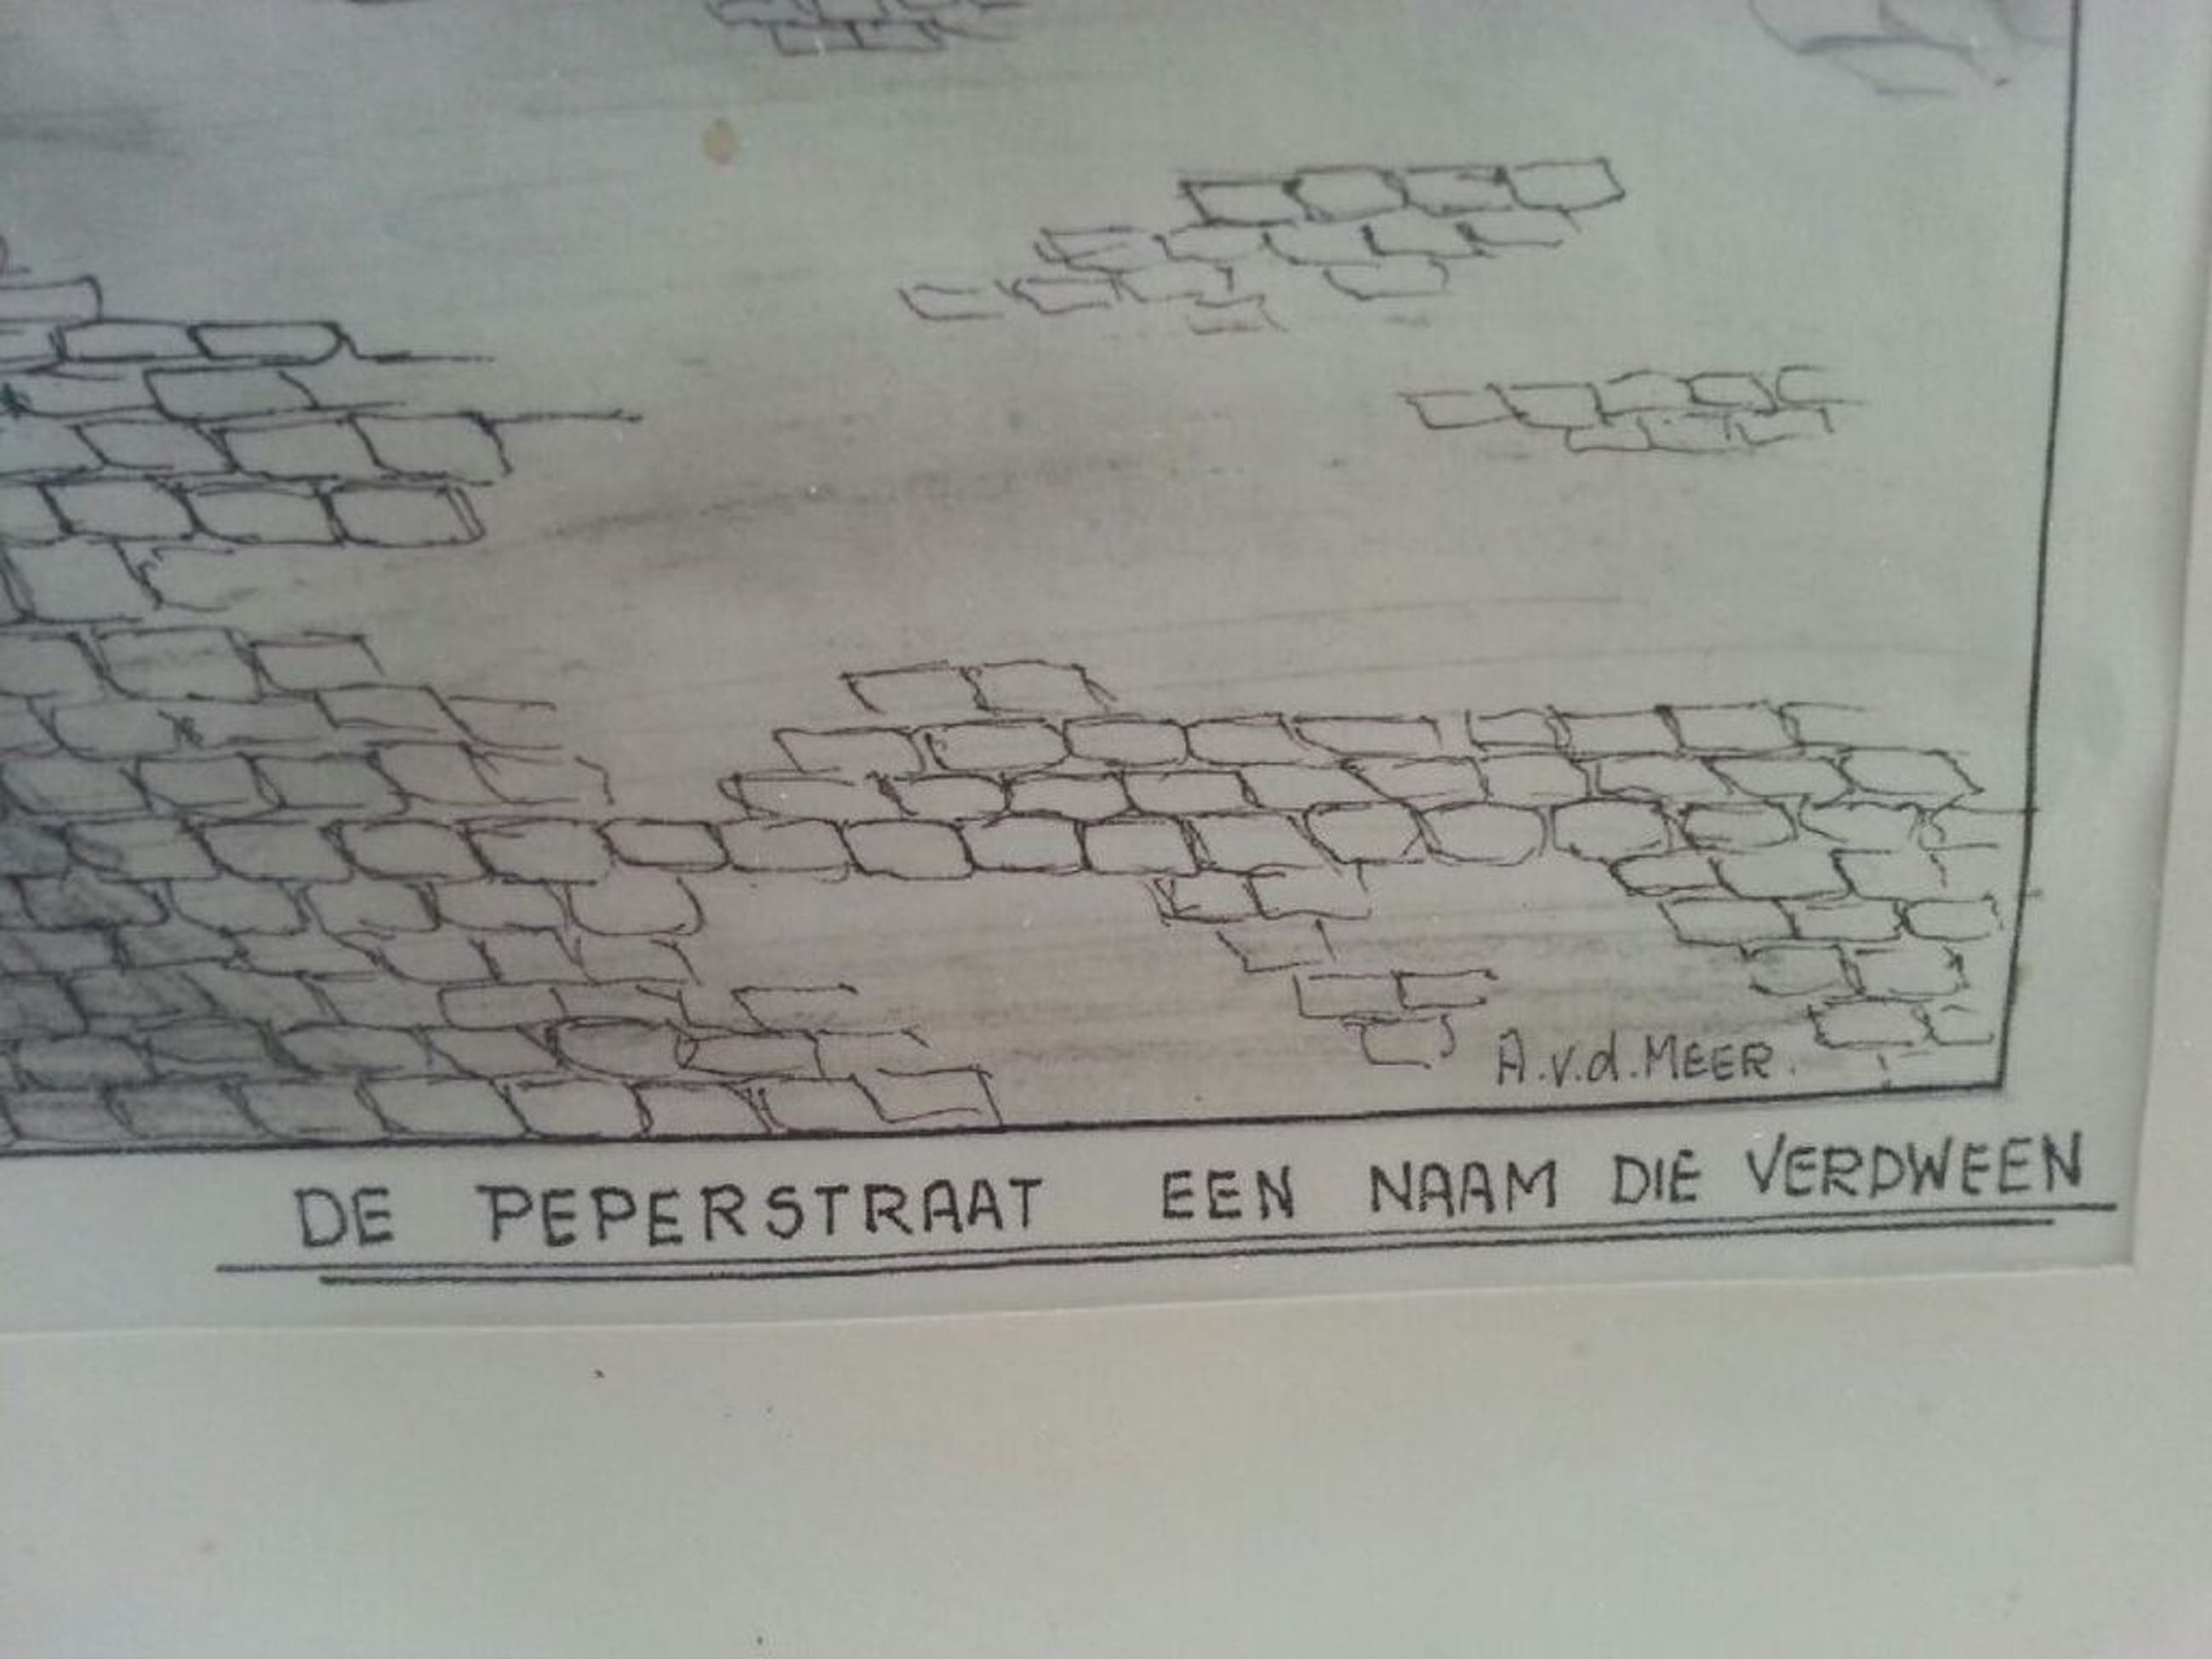 A.v.d.MEER.
DE PEPERSTRAAT EEN NAAM DIE VERDWEEN